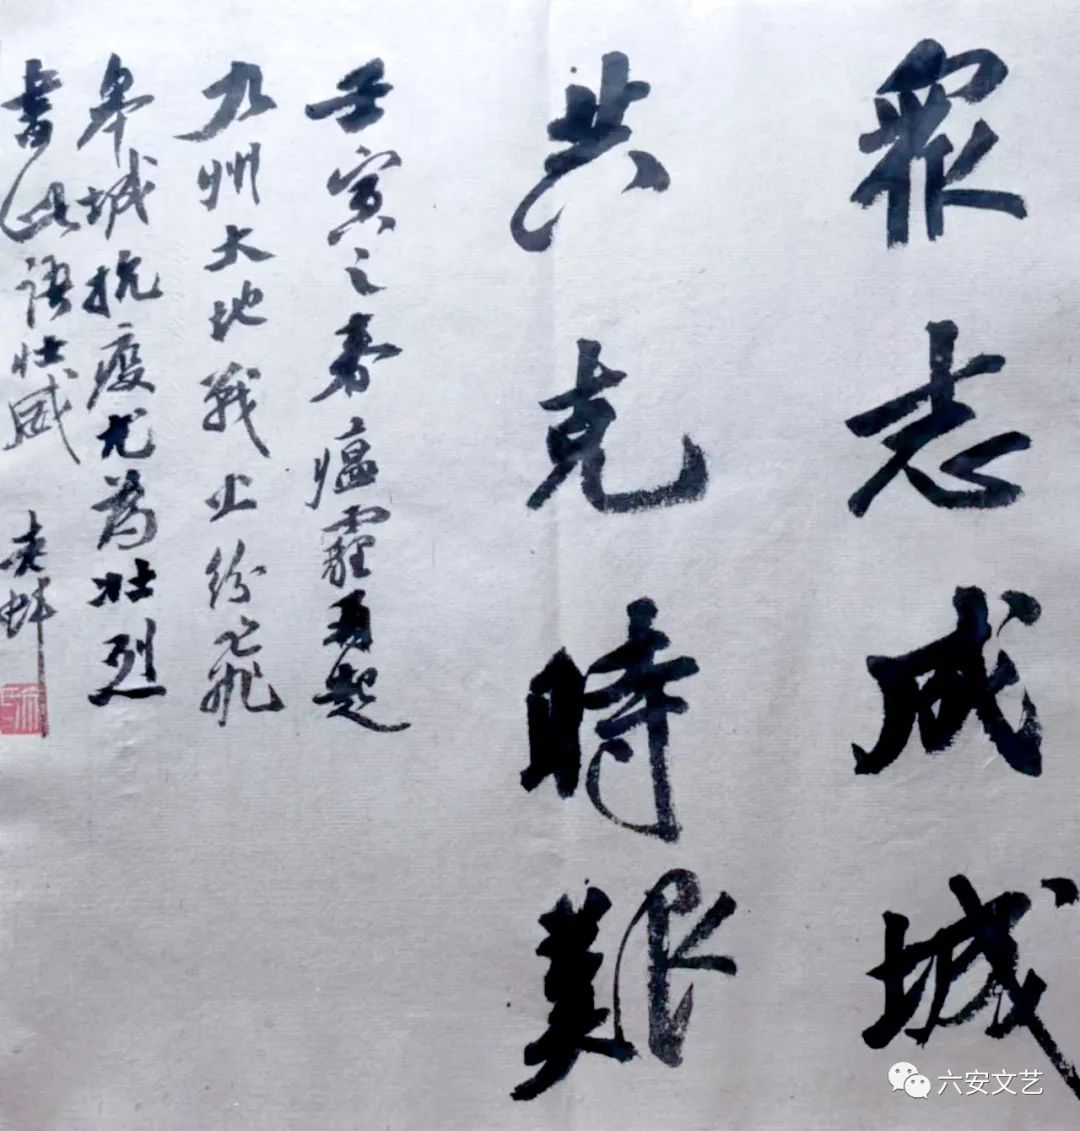 眾志成城
共克時艱
壬寅之春瘟霾再起
九州大地戰紛飛
皋城抗疫尤為壯烈
書此語壯威
六安文艺